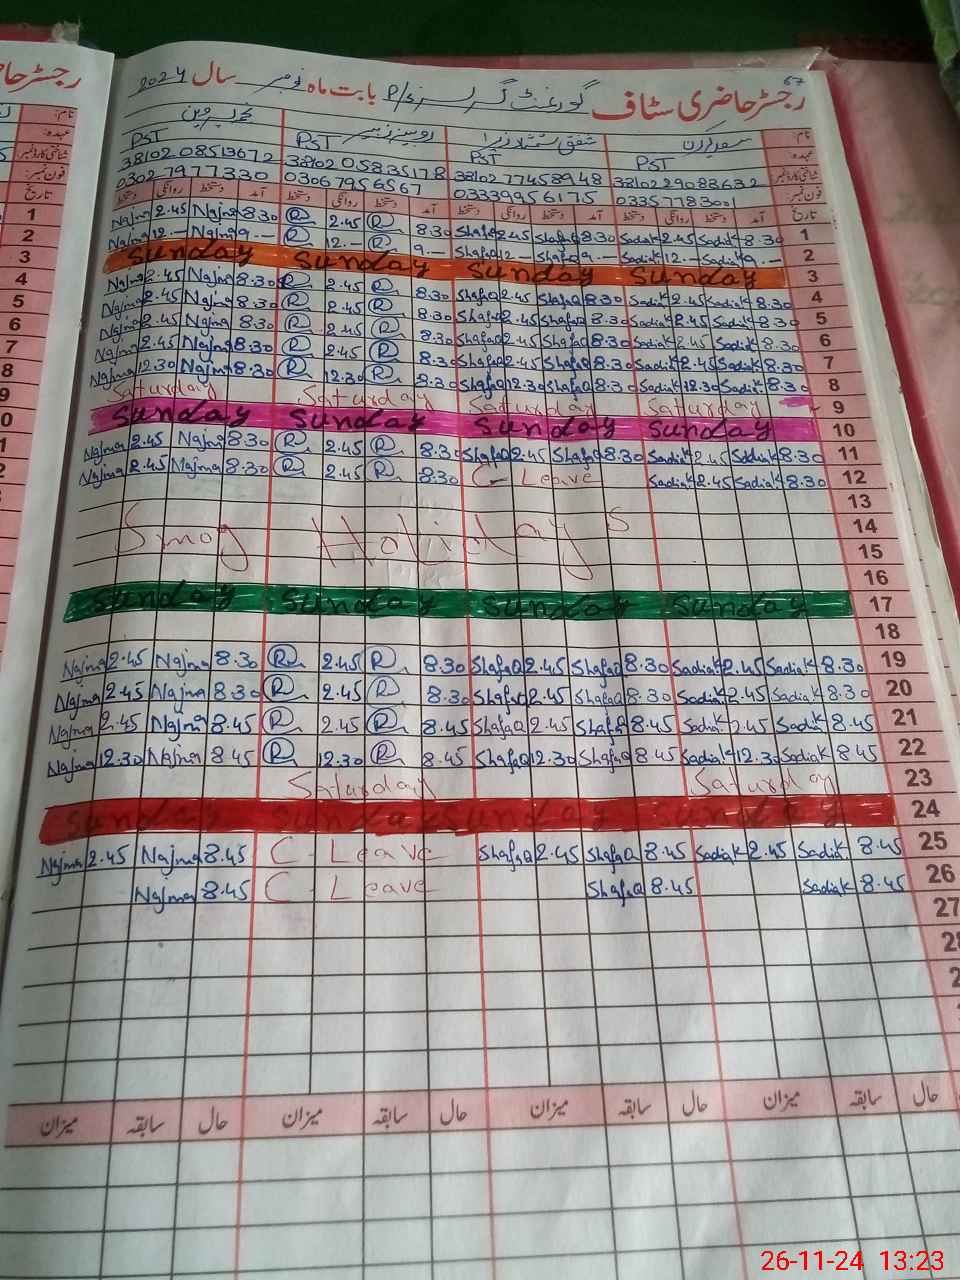 67
رجسٹر حاضری سٹاف گورنمنٹ گرلز P/S بابت ماہ نومبر سال 2024
رجسٹر حاضری
نام:
عہدہ: PST PST PST PST
شناختی کارڈ نمبر: 38102 2908363 2 38102 7745894 8 38102 0583517 8 38102 0851367 2
فون نمبر: 03357783001 03339956175 03067956567 03027977330
تاریخ آمد دستخط روانگی دستخط آمد دستخط روانگی دستخط آمد دستخط روانگی دستخط آمد دستخط روانگی دستخط
Najma 2.45 Najma 8.30 R 2.45 R 8.30 Shafaq 2.45 Shafaq 8.30 Sadia K 2.45 Sadia K 8.30 1
Najma 12.— Najma 9.— R 12.— R 9.— Shafaq 12.— Shafaq 9.— Sadia K 12.— Sadia K 9.— 2
Sunday Sunday Sunday Sunday 3
Najma 2.45 Najma 8.30 R 2.45 R 8.30 Shafaq 2.45 Shafaq 8.30 Sadia K 2.45 Sadia K 8.30 4
Najma 2.45 Najma 8.30 R 2.45 R 8.30 Shafaq 2.45 Shafaq 8.30 Sadia K 2.45 Sadia K 8.30 5
Najma 2.45 Najma 8.30 R 2.45 R 8.30 Shafaq 2.45 Shafaq 8.30 Sadia K 2.45 Sadia K 8.30 6
Najma 2.45 Najma 8.30 R 2.45 R 8.30 Shafaq 2.45 Shafaq 8.30 Sadia K 2.45 Sadia K 8.30 7
Najma 12.30 Najma 8.30 R 12.30 R 8.30 Shafaq 12.30 Shafaq 8.30 Sadia K 12.30 Sadia K 8.30 8
Saturday Saturday Saturday Saturday 9
Sunday Sunday Sunday Sunday 10
Najma 2.45 Najma 8.30 R 2.45 R 8.30 Shafaq 2.45 Shafaq 8.30 Sadia K 2.45 Sadia K 8.30 11
Najma 2.45 Najma 8.30 R 2.45 R 8.30 C - Leave Sadia K 2.45 Sadia K 8.30 12
13
Smog Holidays 14
15
16
Sunday Sunday Sunday Sunday 17
18
Najma 2.45 Najma 8.30 R 2.45 R 8.30 Shafaq 2.45 Shafaq 8.30 Sadia K 2.45 Sadia K 8.30 19
Najma 2.45 Najma 8.30 R 2.45 R 8.30 Shafaq 2.45 Shafaq 8.30 Sadia K 2.45 Sadia K 8.30 20
Najma 2.45 Najma 8.45 R 2.45 R 8.45 Shafaq 2.45 Shafaq 8.45 Sadia K 2.45 Sadia K 8.45 21
Najma 12.30 Najma 8.45 R 12.30 R 8.45 Shafaq 12.30 Shafaq 8.45 Sadia K 12.30 Sadia K 8.45 22
Saturday Saturday 23
Sunday Sunday Sunday Sunday 24
Najma 2.45 Najma 8.45 C - Leave Shafaq 2.45 Shafaq 8.45 Sadia K 2.45 Sadia K 8.45 25
Najma 8.45 C - Leave Shafaq 8.45 Sadia K 8.45 26
27
حال سابقہ میزان حال سابقہ میزان حال سابقہ میزان حال سابقہ میزان
26-11-24 13:23